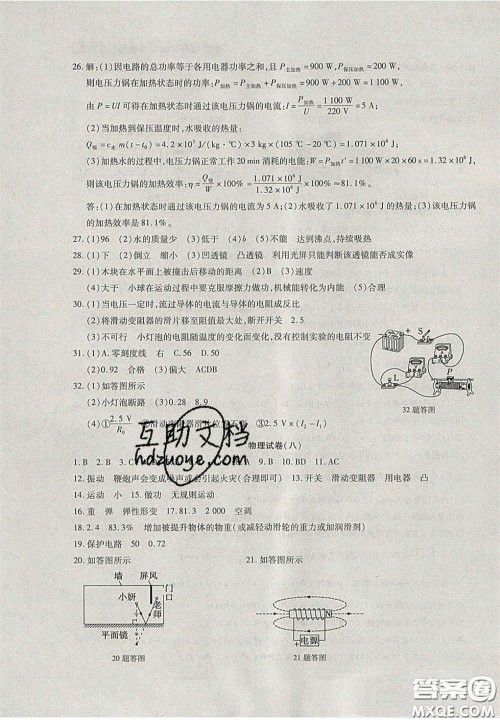 26. 解:(1)因电路的总功率等于各用电器功率之和,且 P主加热=900 W,P保压加热=200 W,
则电压力锅在加热状态时的功率:P加热=P主加热+P保压加热=900 W+200 W=1 100 W,
由 P=UI 可得在加热状态时通过该电压力锅的电流:I=P加热/U=1 100 W/220 V=5 A;
(2)当加热到保压温度时,水吸收的热量:
Q吸=c水 m(t-t₀)=4.2×10³ J/(kg·℃)×3 kg×(105 ℃-20 ℃)=1.071×10⁶ J;
(3)加热水的过程中,电压力锅正常工作20 min 消耗的电能:W=P加热t'=1 100 W×20×60 s=1.32×10⁶ J,
则该电压力锅的加热效率:η=Q吸/W×100%=1.071×10⁶ J/1.32×10⁶ J×100%≈81.1%。
答:(1)在加热状态时通过该电压力锅的电流为 5 A;(2)水吸收了 1.071×10⁶ J 的热量;(3)该电压力锅
的加热效率是 81.1%。
27. (1)96 (2)水的质量少 (3)低于 (4)b (5)不能 达到沸点,持续吸热
28. (1)下 (2)倒立 缩小 (3)凹透镜 凸透镜 利用光屏只能判断该透镜能否成实像
29. (1)木块在水平面上被撞击后移动的距离 (2)B (3)速度
(4)大于 小球在运动过程中要克服摩擦力做功,机械能转化为内能 (5)合理
30. (1)当电压一定时,流过导体的电流与导体的电阻成反比
(2)将滑动变阻器的滑片移至阻值最大处,断开开关 2.5
(3)不可行 小灯泡的电阻随温度的变化而变化,没有控制实验的电阻不变
31. (1)A. 零刻度线 右 C. 56 D. 50
(2)0.92 合格 (3)偏大 ACDB
32. (1)如答图所示
(2)小灯泡断路 (3)0.28 8.9
(4)①2.5 V/R₀ ③2.5 V×(I₂-I₁)
S
P
L
32题答图
物理试卷(八)
1. B 2. B 3.
9. B 10. BD 11. AC
12. 振动 鞭炮声会变成噪声或会引起火灾(合理即可) 13. 开关 滑动变阻器 用电器 凸
14. 运动 小 15. 做功 无规则运动
16. 重 弹 弹性形变 17. 81.3 2 000 空调
18. 2.4 83.3% 增加被提升物体的物重(或减轻动滑轮的重力或加润滑剂)
19. 保护电路 50 0.72
20. 如答图所示 21. 如答图所示
墙 屏风 门口
小妍 老师
平面镜
20题答图
N
电源
21题答图
互助文档
hdzuoye.com
答案圈
MXQE.COM